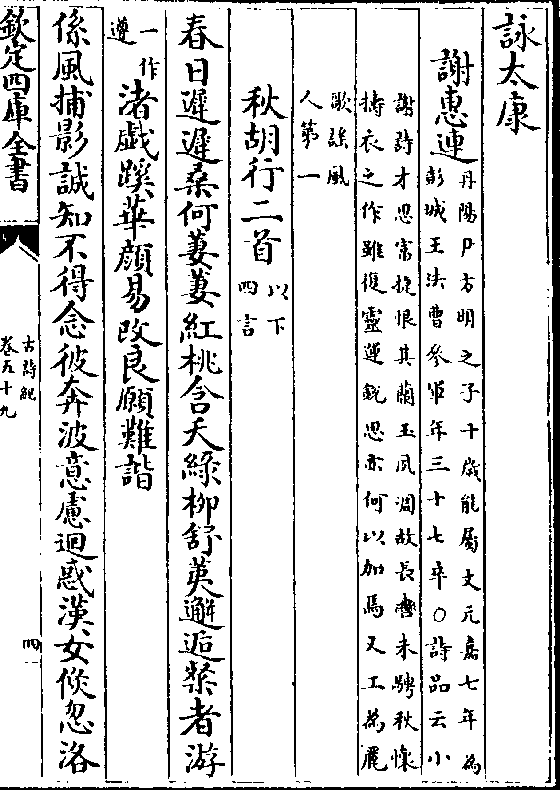 詠太康
謝惠連
丹陽尹方明之子十歲能屬文元嘉七年為
彭城王法曹參軍年三十七卒○詩品云小
謝詩才思富捷恨其蘭玉夙凋故長轡未騁秋懷
擣衣之作雖復靈運銳思亦何以加焉又工為麗
歌謠風
人第一
秋胡行二首
以下
四言
春日遲遲桑何萋萋紅桃含夭綠柳舒荑邂逅粲者游
一作
遵
渚戲蹊華顏易改良願難諧
係風捕影誠知不得念彼奔波意慮迴惑漢女倏忽洛
欽定四庫全書
古詩紀
卷五十九
四